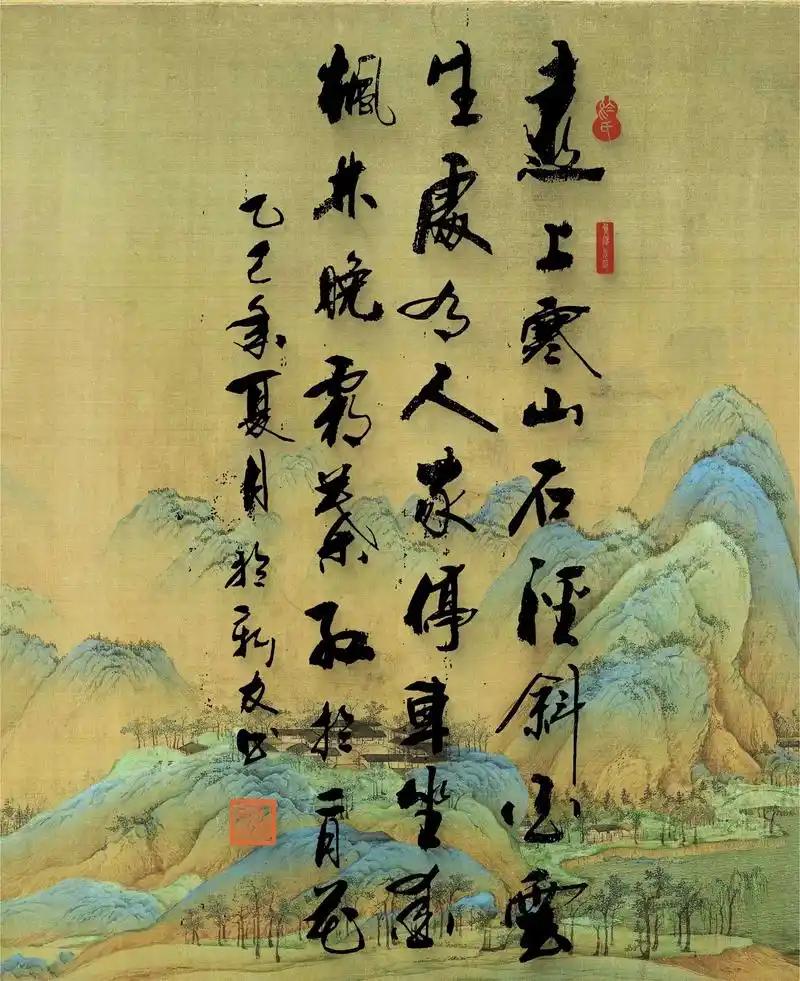 於氏
遠上寒山石徑斜白雲
生處有人家停車坐愛
楓林晚霜葉紅於二月花
乙巳年夏月於新友书